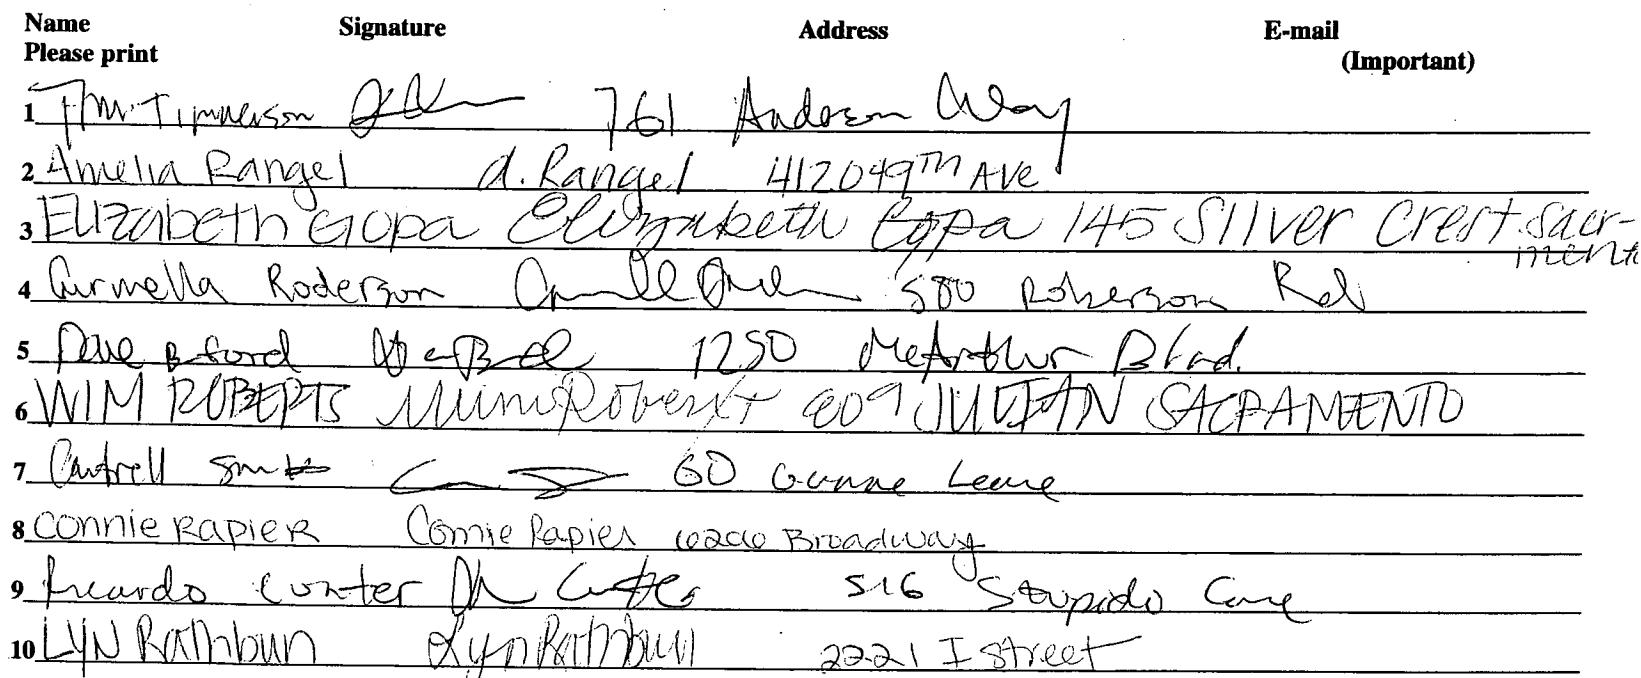 Name Signature Address E-mail
Please print (Important)
1 Tim Timmerson 761 Anderson Way
2 Amelia Rangel A. Rangel 4120 49TH AVE
3 Elizabeth Gopa Elizabeth Gopa 145 Silver Crest Sacr-
mento
4 Curmella Roderson 580 Roberson Rd
5 Dave Buford 1250 McArthur Blvd.
6 WIM ROBERTS Wim Roberts 809 JULIAN SACRAMENTO
7 Cantrell Smith 60 Lane
8 CONNIE RAPIER Connie Rapier Broadway
9 Ricardo 516
10 LYN Rathbun Lyn Rathbun 2221 I street